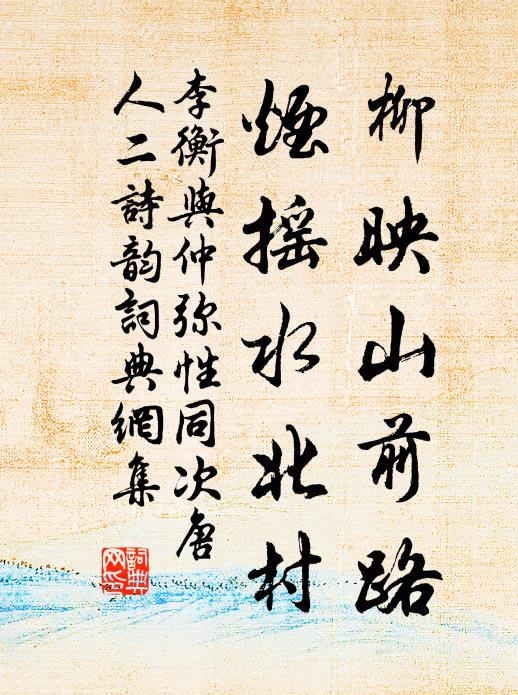 柳映山前路
煙摇水北村
李衡與仲弥性同次唐
人二詩韵詞典網集
詞典
网印